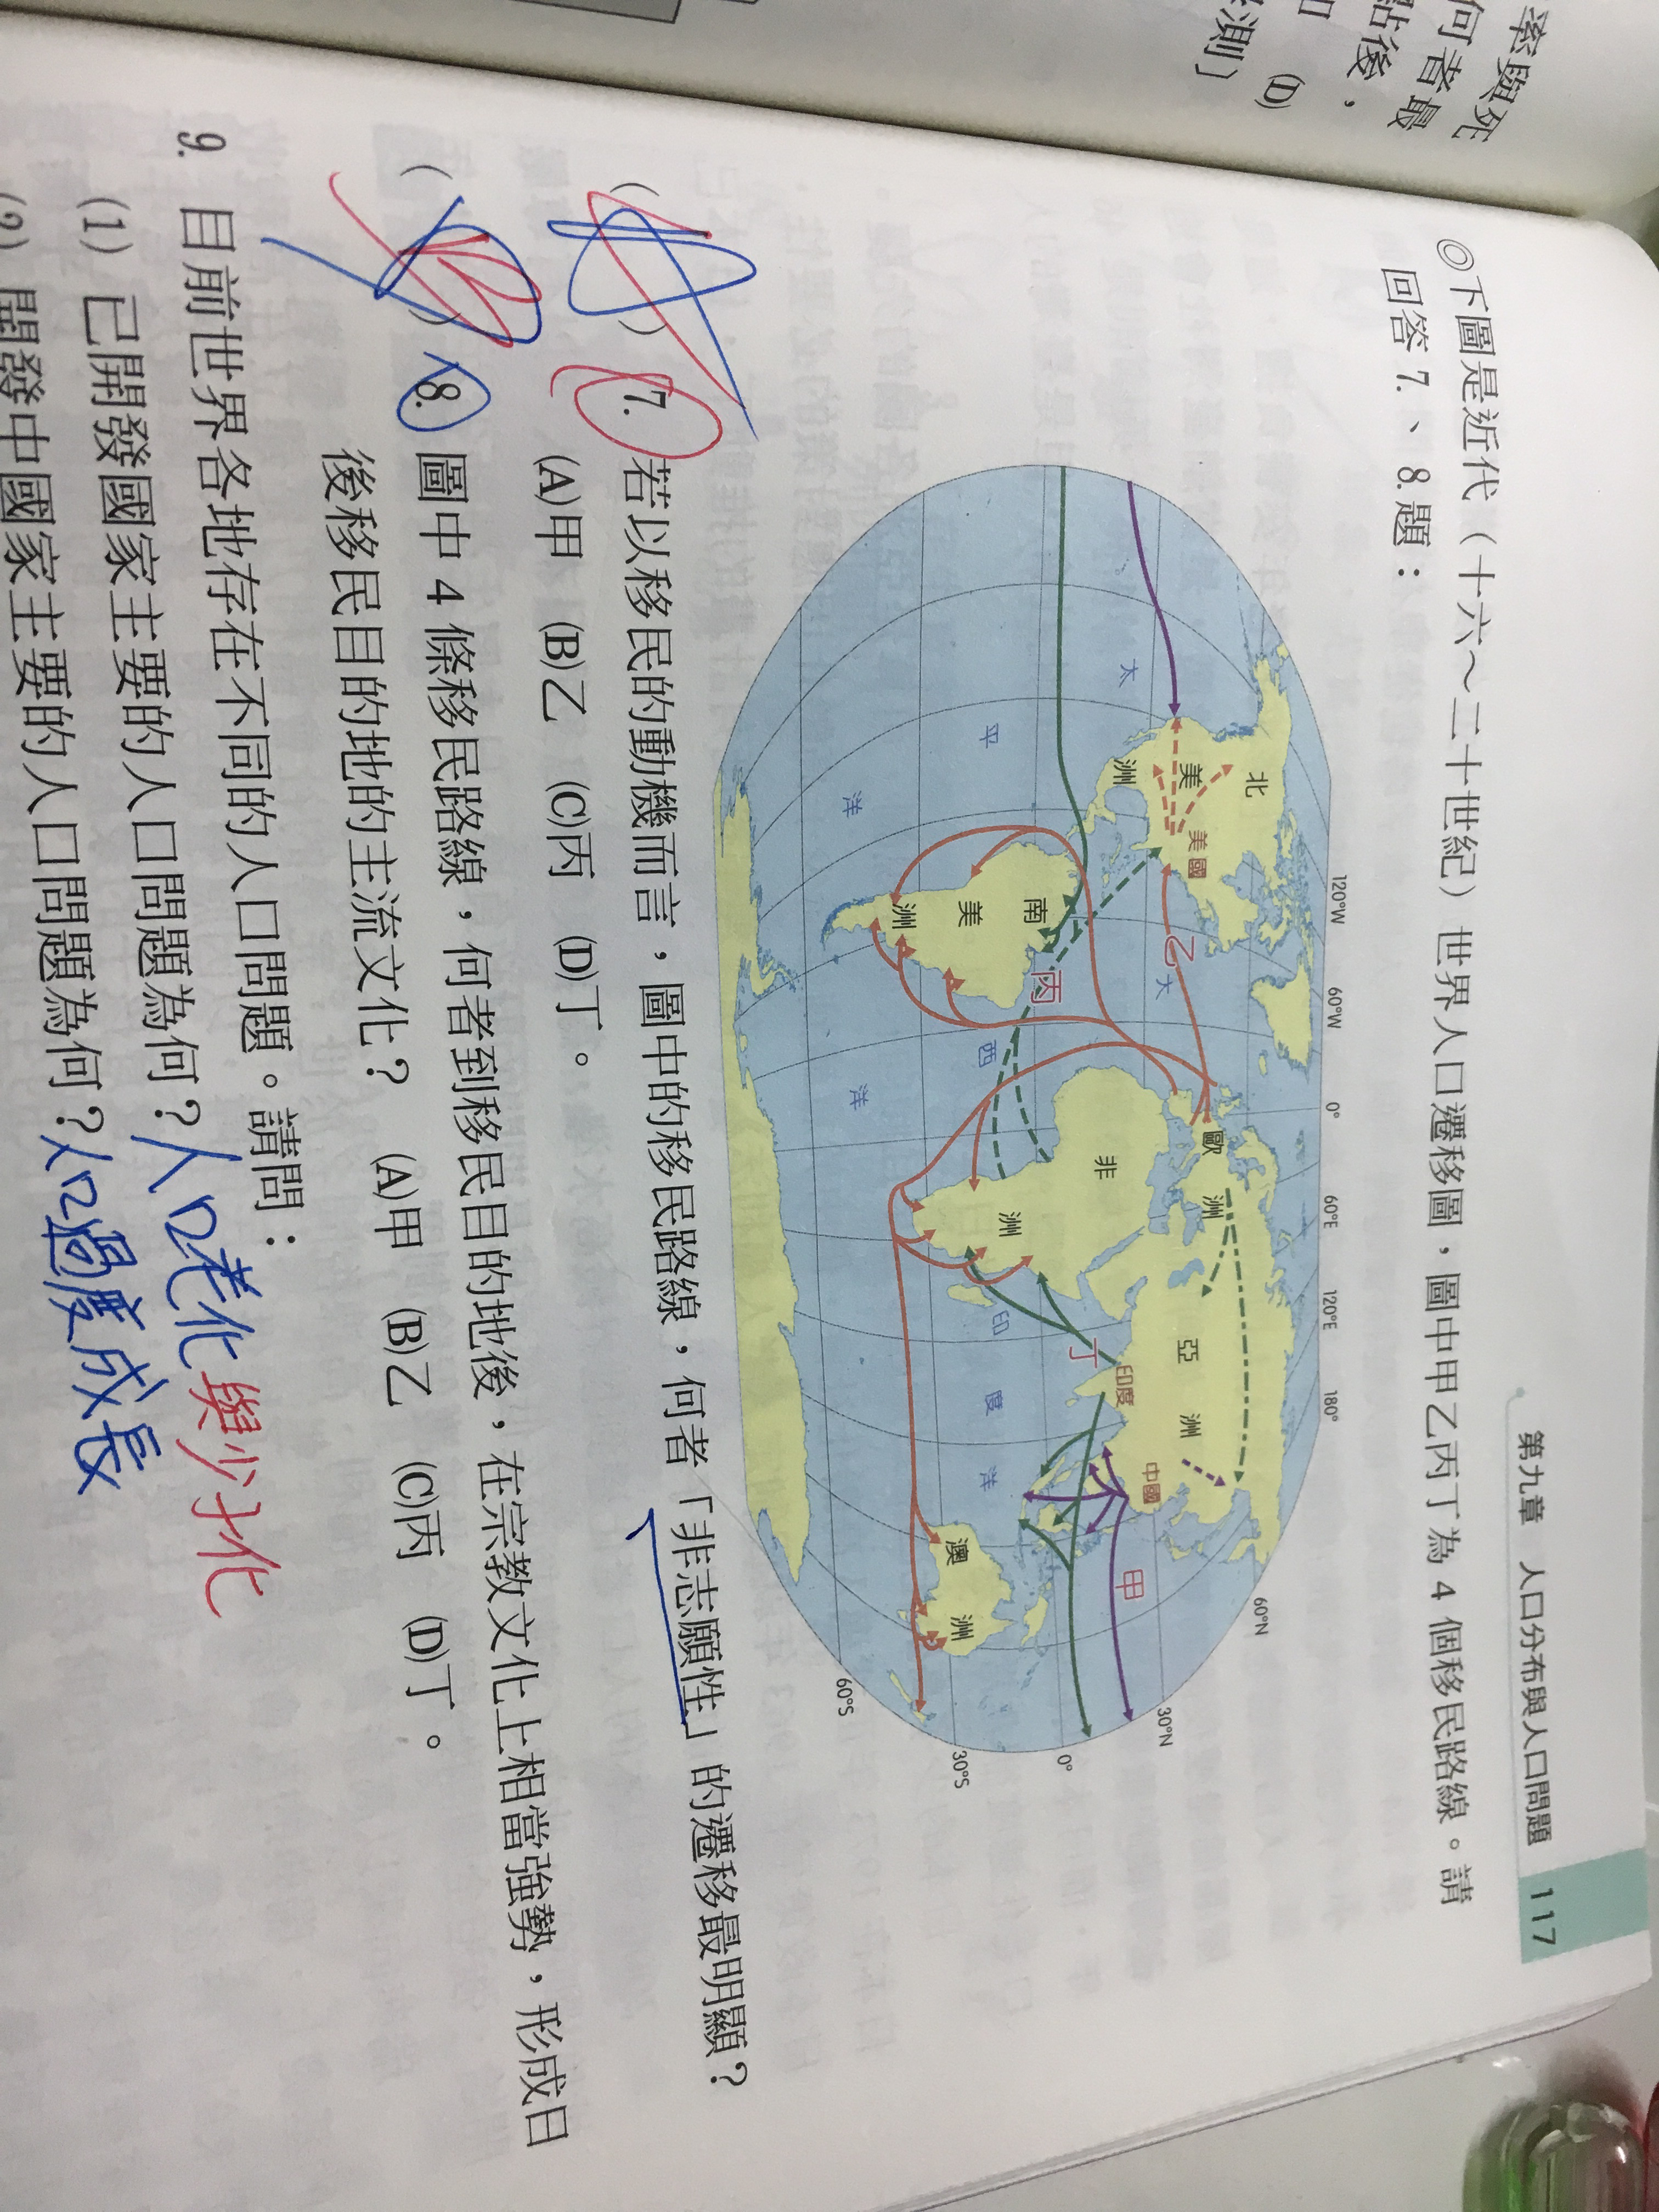 率與死
何者最
點後，
(D)
測〕
第九章　人口分布與人口問題　117
◎下圖是近代（十六～二十世紀）世界人口遷移圖，圖中甲乙丙丁為 4 個移民路線。請
回答 7.、8.題：
120°W 60°W 0° 60°E 120°E 180°
60°N
30°N
0°
30°S
60°S
北
美
洲
美國
太
平
洋
南
美
洲
乙
大
西
洋
丙
歐
洲
非
洲
亞
洲
印度
丁
印
度
洋
中國
甲
澳
洲
7. 若以移民的動機而言，圖中的移民路線，何者「非志願性」的遷移最明顯？
(A)甲 (B)乙 (C)丙 (D)丁。
8. 圖中 4 條移民路線，何者到移民目的地後，在宗教文化上相當強勢，形成日
後移民目的地的主流文化？ (A)甲 (B)乙 (C)丙 (D)丁。
9. 目前世界各地存在不同的人口問題。請問：
(1) 已開發國家主要的人口問題為何？人口老化與少子化
(2) 開發中國家主要的人口問題為何？人口過度成長